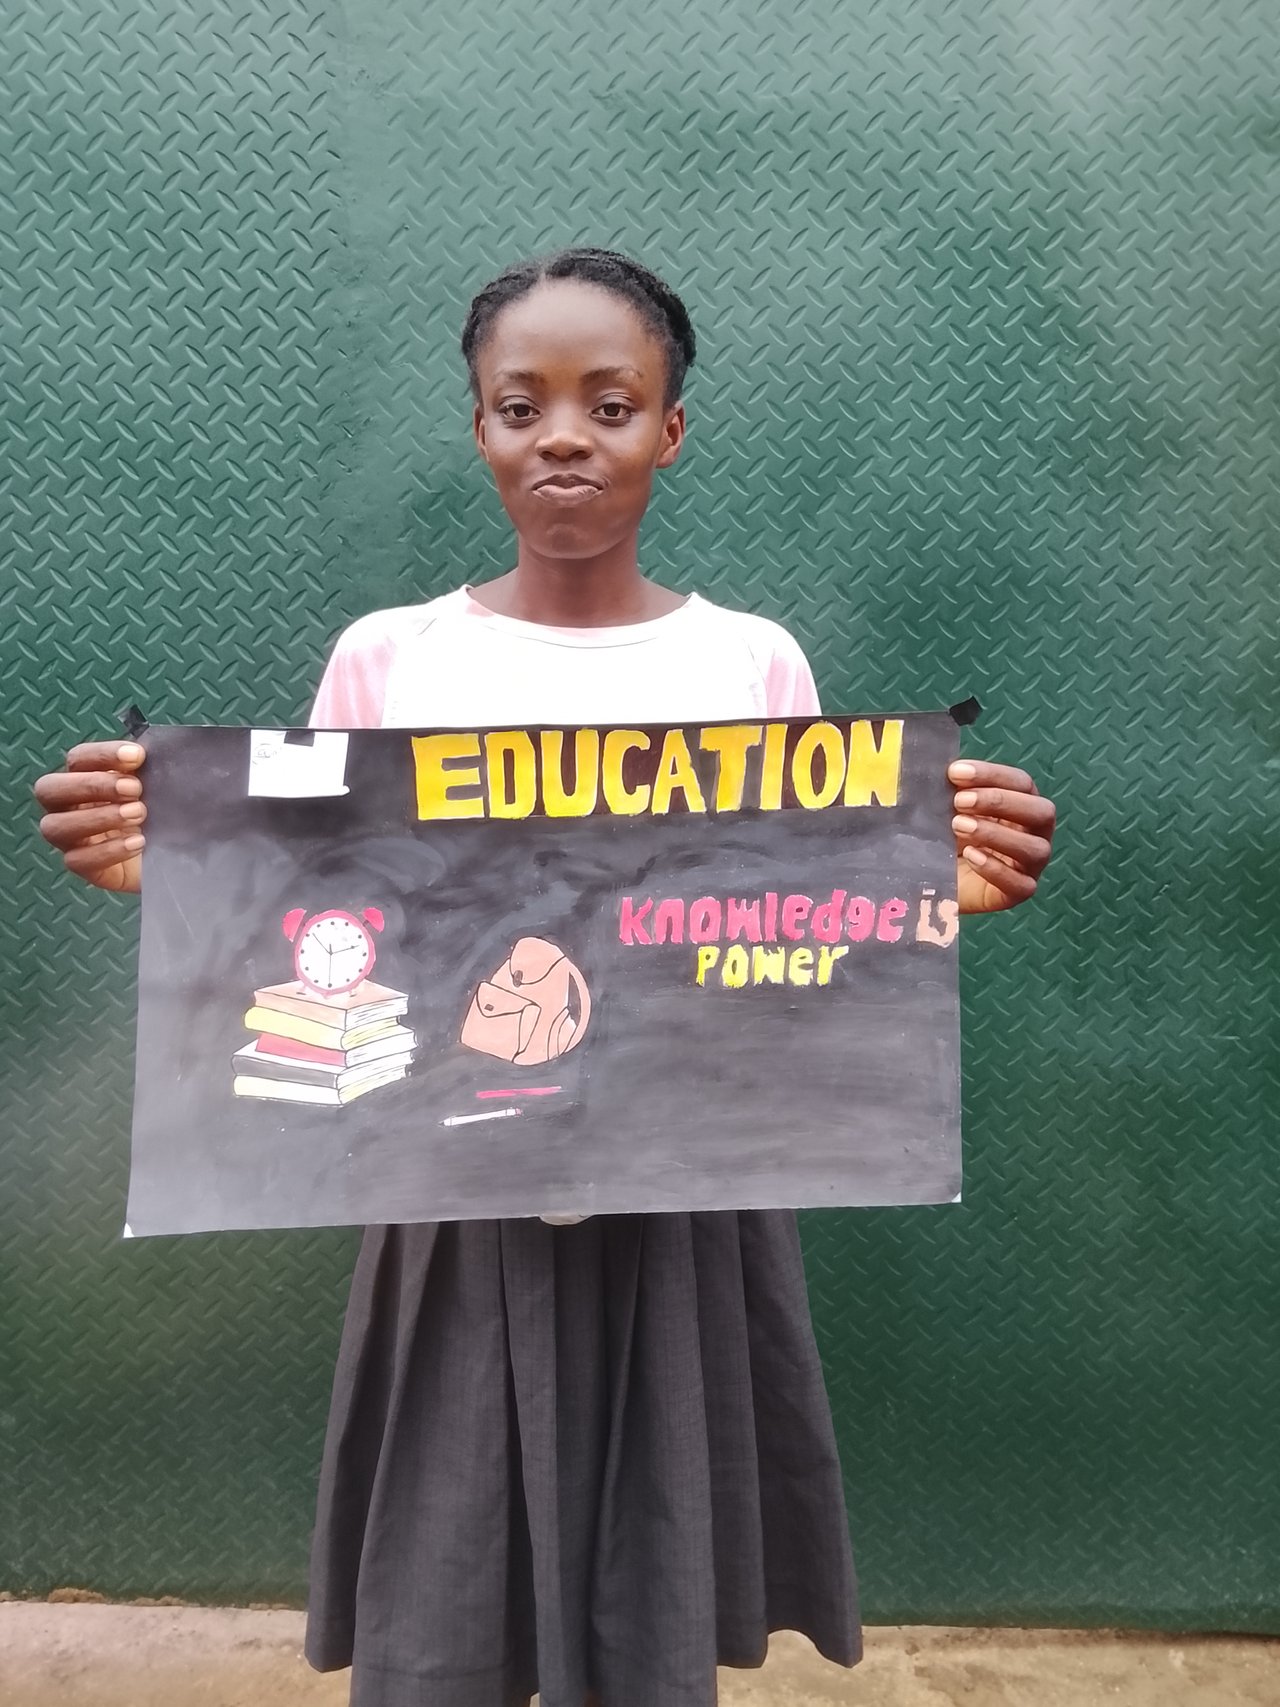 EDUCATION
Knowledge is
Power